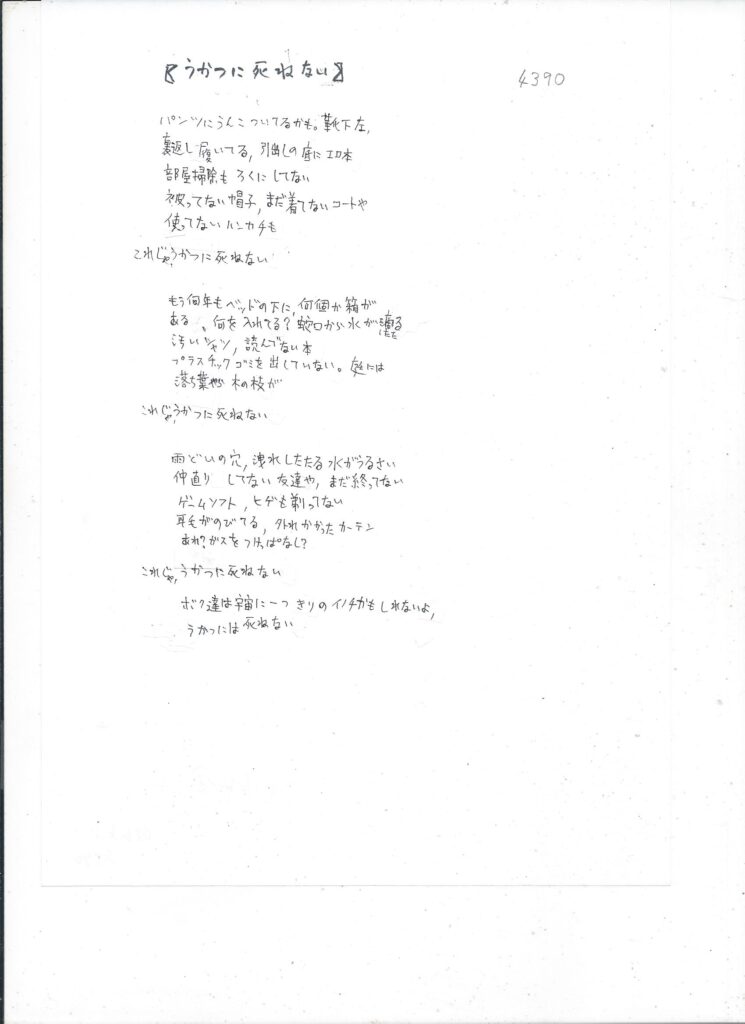 【うかつに死ねない】
4390
パンツにうんこついてるかも。靴下左、
裏返し履いてる、引出しの底にエロ本
部屋掃除もろくにしてない
被ってない帽子、まだ着てないコートや
使ってないハンカチも
これじゃ、うかつに死ねない
もう何年もベッドの下に、何個か箱が
ある、何を入れてる?蛇口から水が
汚いシャツ、読んでない本
プラスチックゴミを出していない。庭には
落ち葉や木の枝が
これじゃ、うかつに死ねない
雨どいの穴、洩れしたたる水がうるさい
仲直りしてない友達や、まだ終ってない
ゲームソフト、ヒゲも剃ってない
耳毛がのびてる、外れかかったカーテン
あれ?ガスをつけっぱなし?
これじゃ、うかつに死ねない
ボク達は宇宙に一つきりのイノチかもしれないよ、
うかつには死ねない